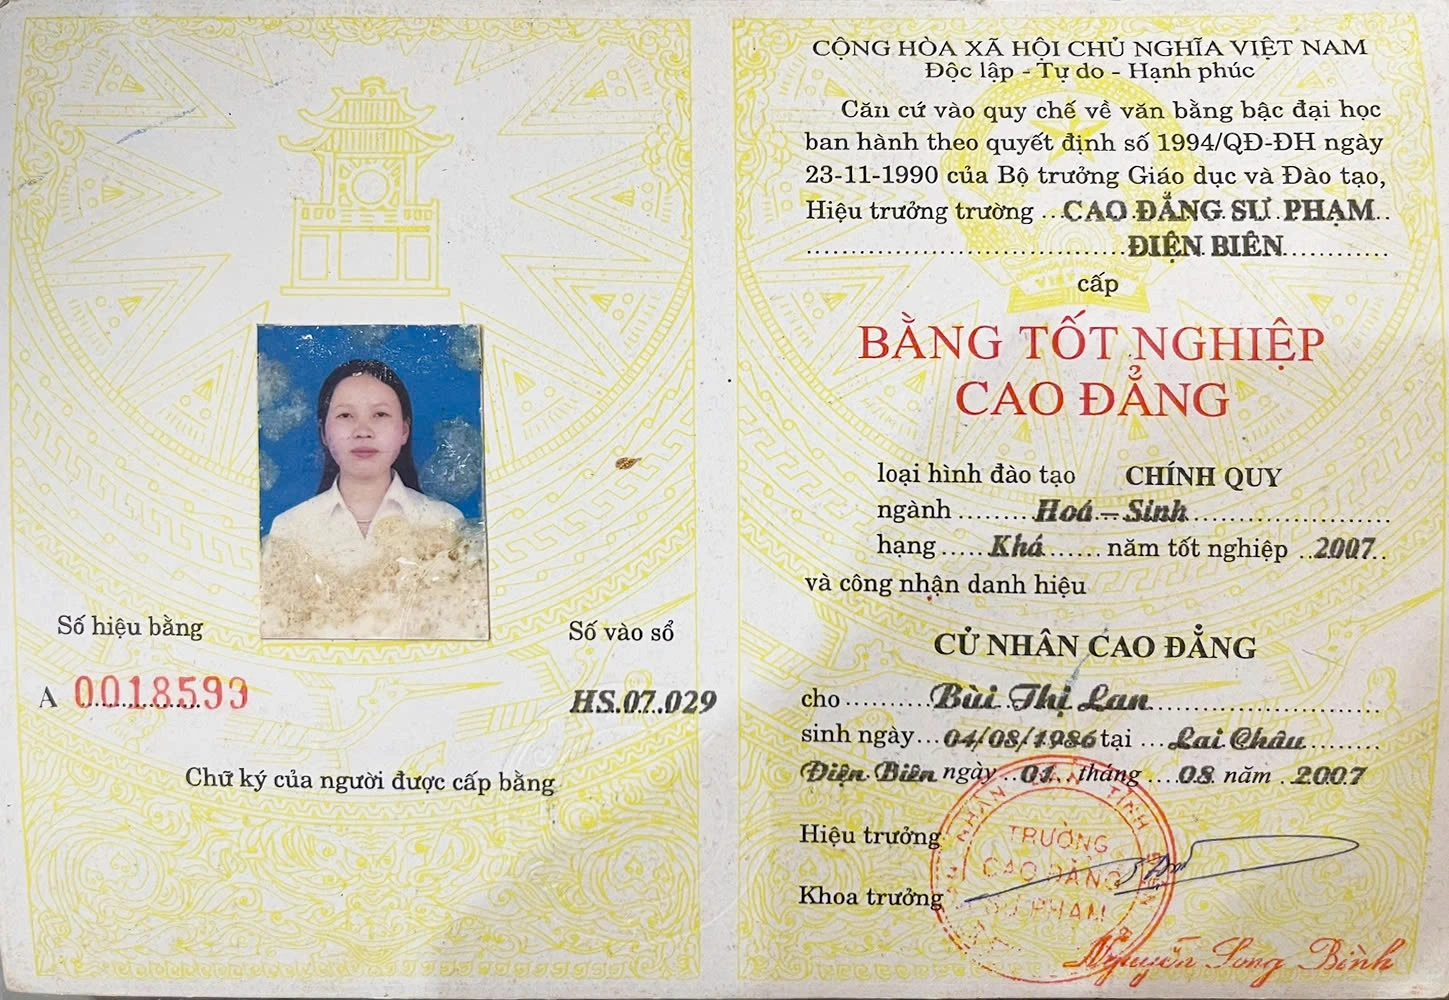 Số hiệu bằng
Số vào sổ
A 0018599
HS.07.029
Chữ ký của người được cấp bằng
CỘNG HÒA XÃ HỘI CHỦ NGHĨA VIỆT NAM
Độc lập - Tự do - Hạnh phúc
Căn cứ vào quy chế về văn bằng bậc đại học
ban hành theo quyết định số 1994/QĐ-ĐH ngày
23-11-1990 của Bộ trưởng Giáo dục và Đào tạo,
Hiệu trưởng trường ...CAO ĐẲNG SƯ PHẠM..
ĐIỆN BIÊN
cấp
BẰNG TỐT NGHIỆP
CAO ĐẲNG
loại hình đào tạo CHÍNH QUY
ngành ........Hoá – Sinh........
hạng.....Khá...... năm tốt nghiệp ..2007..
và công nhận danh hiệu
CỬ NHÂN CAO ĐẲNG
cho ..........Bùi Thị Lan..........
sinh ngày...04/08/1986 tại ...Lai Châu........
Điện Biên ngày ..01.. tháng ....08. năm ..2007
Hiệu trưởng
Khoa trưởng
TRƯỜNG
CAO ĐẲNG
SƯ PHẠM
Nguyễn Long Bình